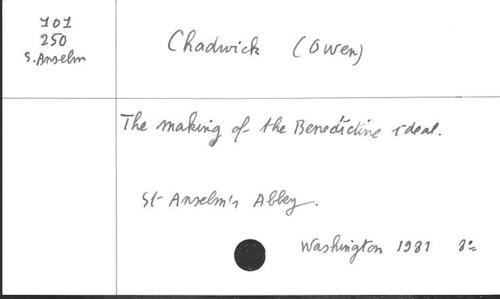 101
250
S. Anselm
Chadwick (Owen)
The making of the Benedictine ideal.
St Anselm's Abbey.
Washington 1981 8°